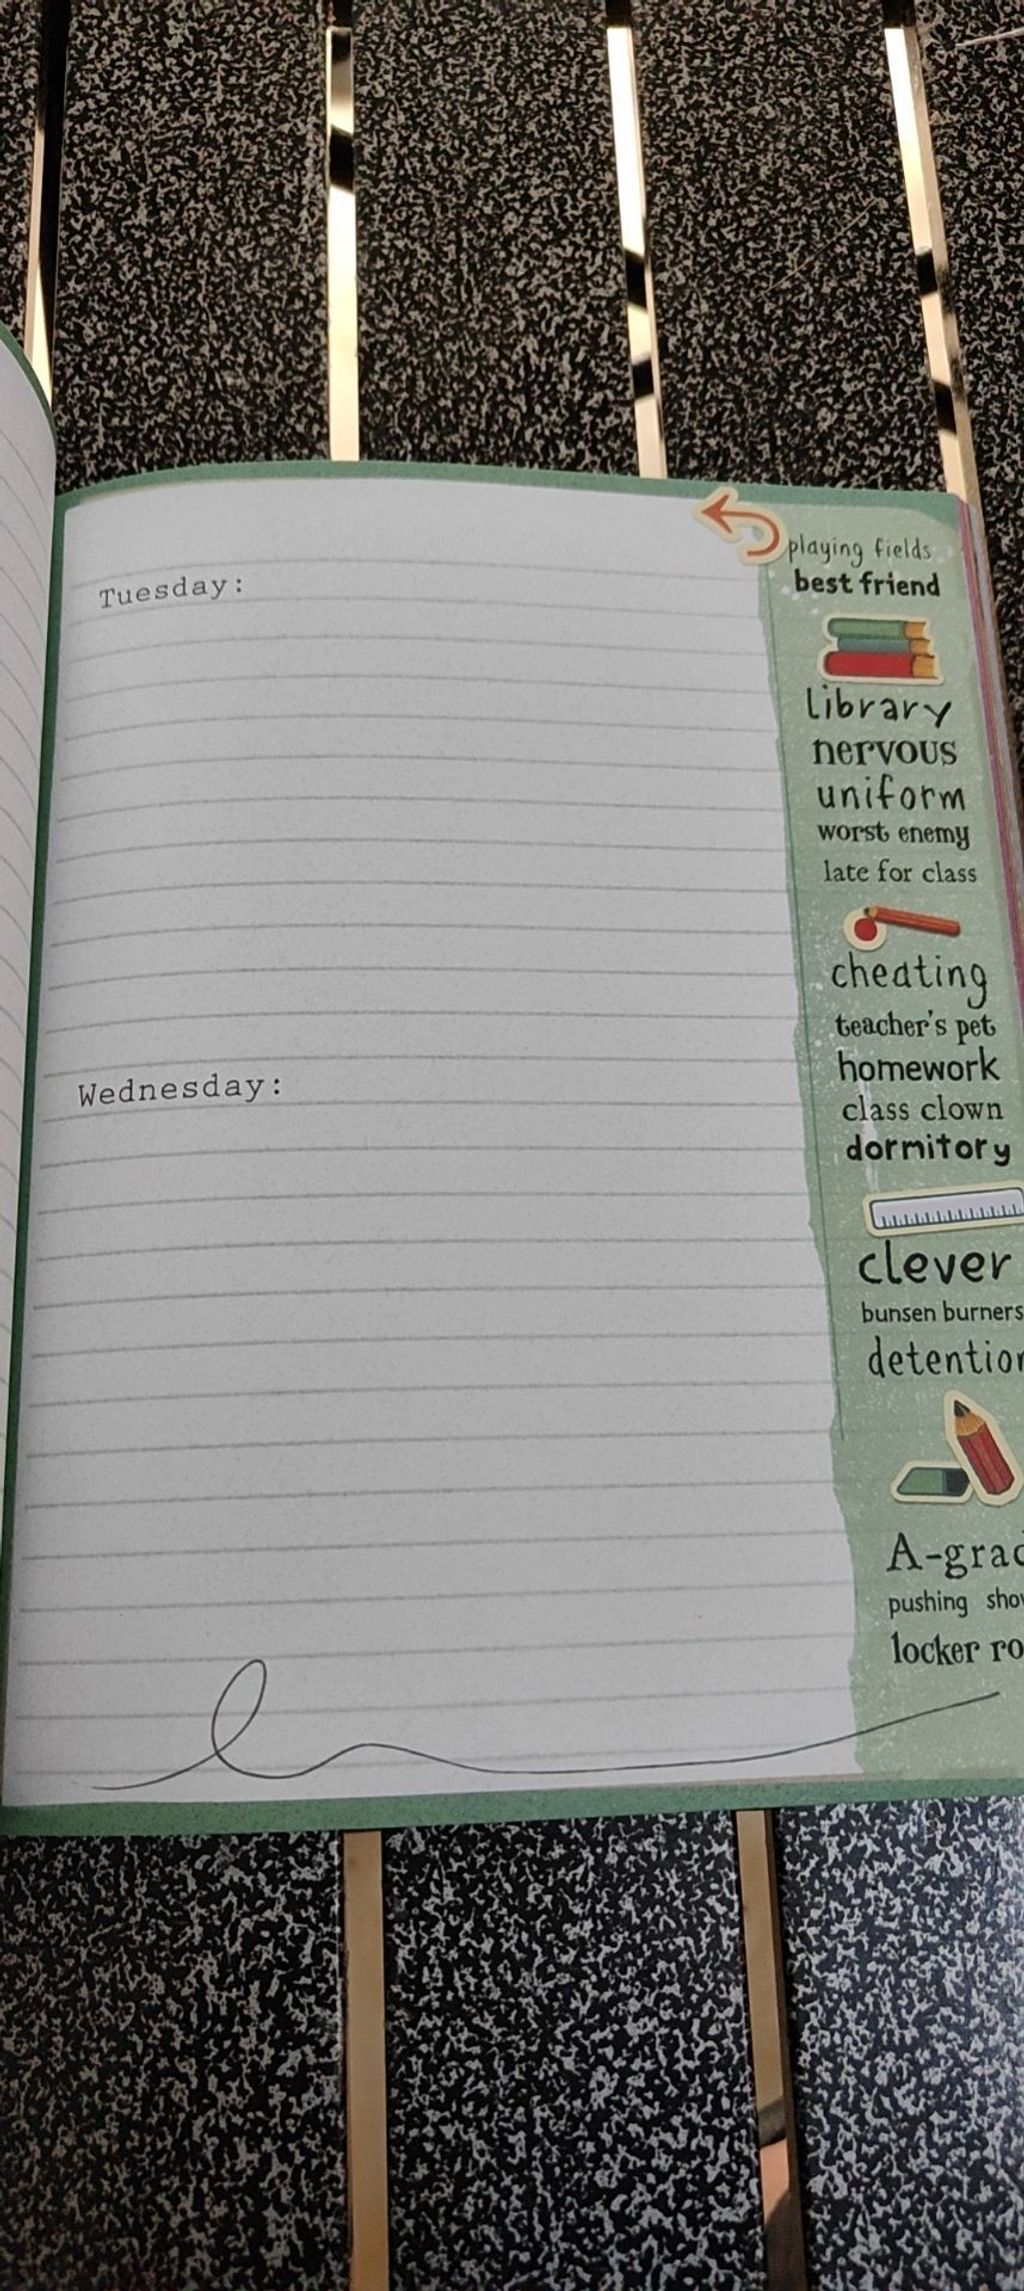 Tuesday:
Wednesday:
playing fields
best friend
library
nervous
uniform
worst enemy
late for class
cheating
teacher's pet
homework
class clown
dormitory
clever
bunsen burners
detention
A-grad
pushing
locker